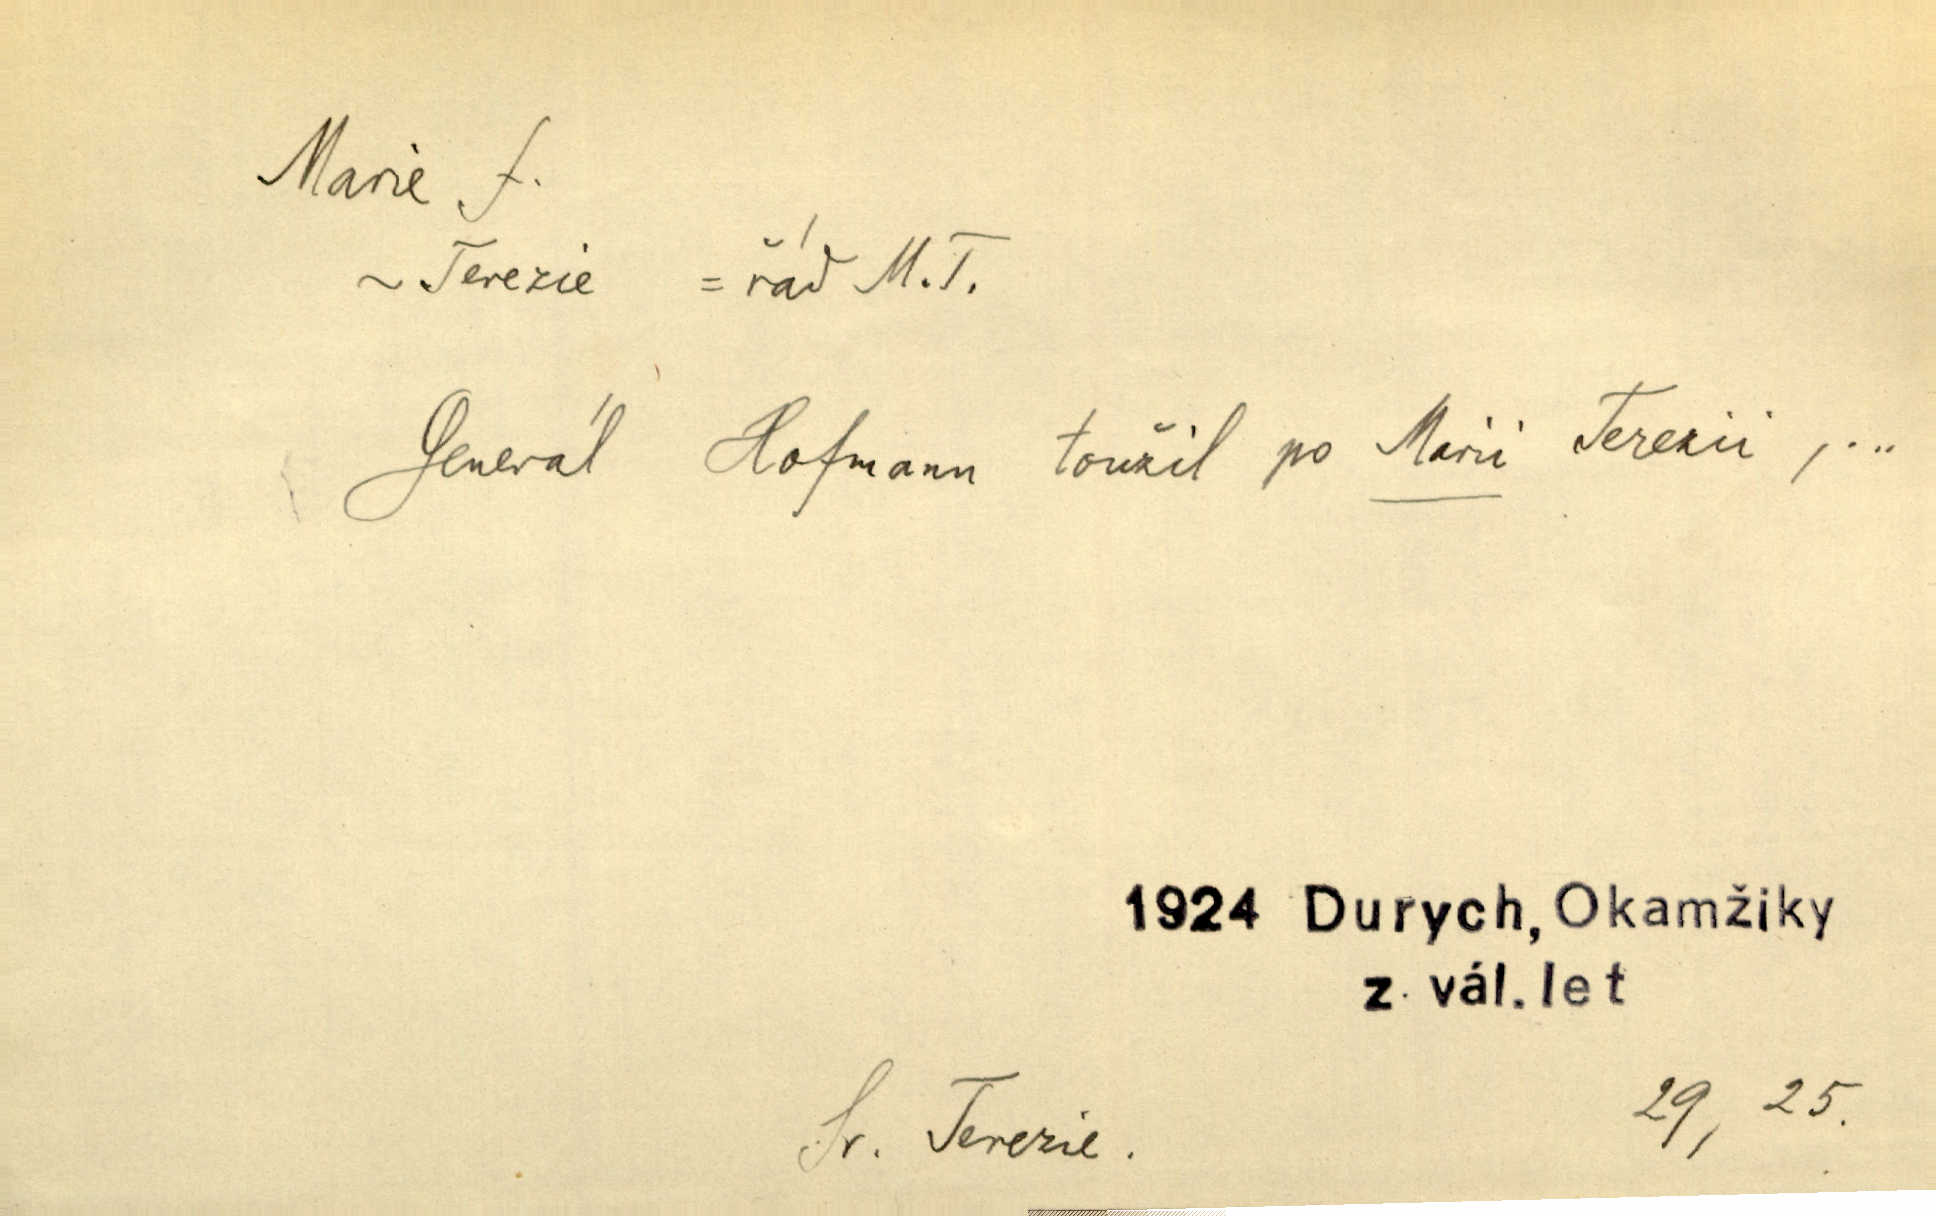 Marie f.
~ Terezie = řád M.T.
Generál Hofmann toužil po Marii Terezii, ...
1924 Durych, Okamžiky
z vál. let
Sr. Terezie. 29, 25.